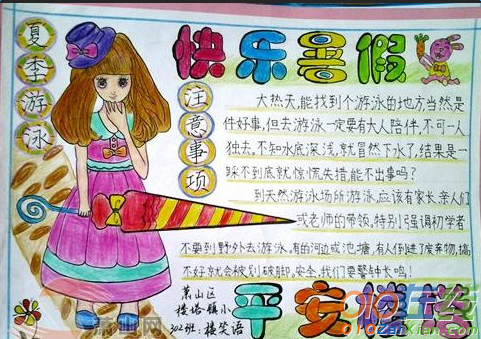 夏季游泳
快乐暑假
注意事项
大热天,能找到个游泳的地方当然是
件好事,但去游泳一定要有大人陪伴,不可一人
独去。不知水底深浅,就冒然下水了,结果是一
踩不到底就惊慌失措,能不出事吗?
到天然游泳场所游泳,应该有家长、亲人们
或老师的带领,特别强调初学者
不要到野外去游泳,有的河边或池塘,有人扔进了废弃物,搞
不好就会被划破脚,安全,我们要警钟长鸣!
萧山区
楼塔镇小
302班:楼笑语
平安